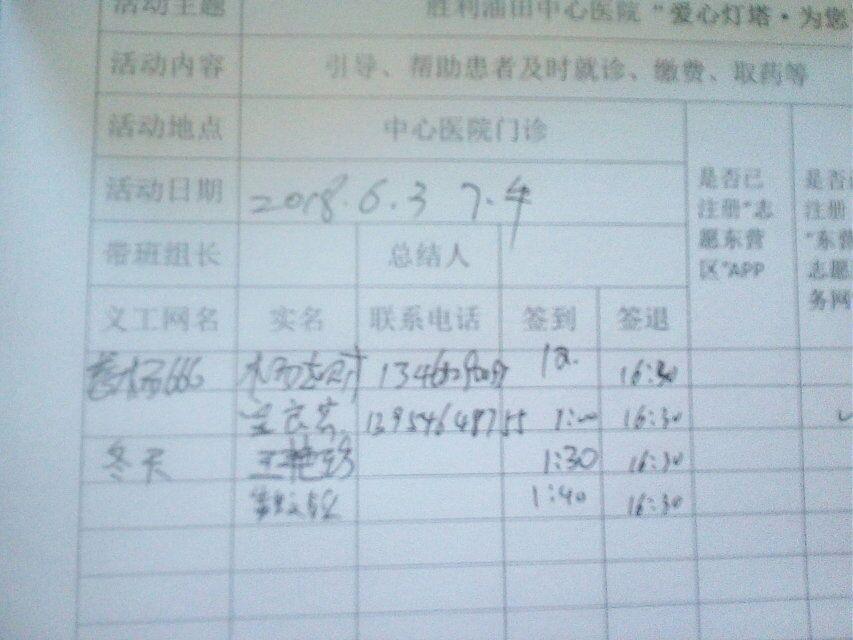 活动主题 胜利油田中心医院“爱心灯塔·为您
活动内容 引导、帮助患者及时就诊、缴费、取药等
活动地点 中心医院门诊
活动日期 2018.6.3 7.4
是否已注册“志愿东营区”APP
是否 注册“东营志愿 务网
带班组长 总结人
义工网名 实名 联系电话 签到 签退
666 16:30
13954648755 1:00 16:30
冬天 王艳玲 1:30 16:30
1:40 16:30